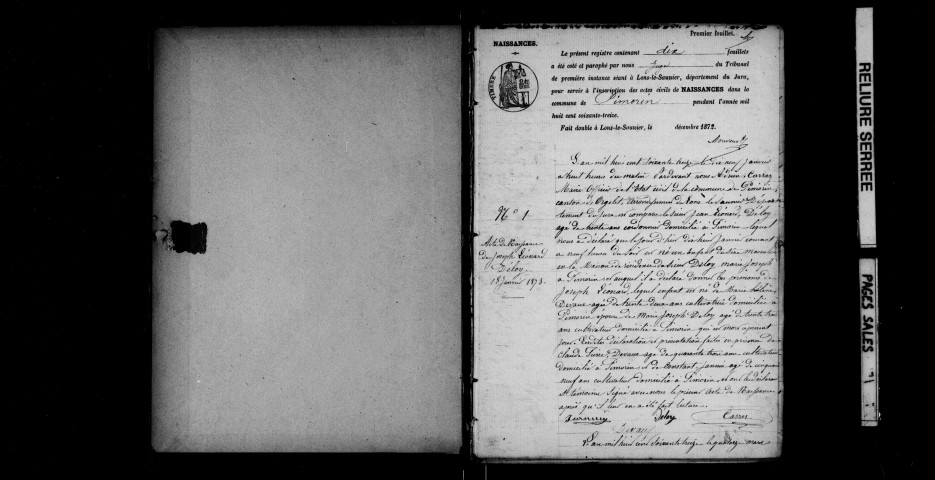 Premier feuillet.
NAISSANCES.
Le présent registre contenant dix feuillets
a été coté et paraphé par nous Juge du Tribunal
de première instance séant à Lons-le-Saunier, département du Jura,
pour servir à l'inscription des actes civils de NAISSANCES dans la
commune de Pimorin pendant l'année mil
huit cent soixante-treize.
Fait double à Lons-le-Saunier, le décembre 1872.
TIMBRE
N° 1
Acte de Naissance
de Joseph Léonard
Deloy
18 janvier 1873.
L'an mil huit cent soixante treize le dix neuf janvier
à huit heures du matin Pardevant nous
Maire Officier de l'Etat civil de la commune de Pimorin
canton d'Orgelet, arrondissement de Lons le Saunier Dépar
tement du Jura est comparu le sieur Jean Léonard Deloy
agé de trente ans cordonnier domicilié à Pimorin lequel
nous a déclaré que le jour d'hier dix huit janvier courant
à neuf heures du soir est né un enfant de sexe masculin
en la Maison de résidence du sieur Deloy marie joseph
à Pimorin et auquel il a déclaré donner les prénoms de
Joseph Léonard, lequel enfant est né de Marie
Devaux agée de trente deux ans cultivatrice domiciliée à
Pimorin épouse de Marie Joseph Deloy agé de trente trois
ans cultivateur domicilié à Pimorin qui est mort à présent
jour. Lesdites déclaration et présentation faites en présence de
Claude Devaux agé de quarante trois ans cultivateur
domicilié à Pimorin et de Constant jannin agé de cinquante
neuf ans cultivateur domicilié à Pimorin et ont le déclarant
et témoins signé avec nous le présent Acte de Naissance
après qu'il leur en a été fait lecture.
Deloy
Devaux
L'an mil huit cent soixante treize le quatorze mars
RELIURE SERREE
PAGES SALES